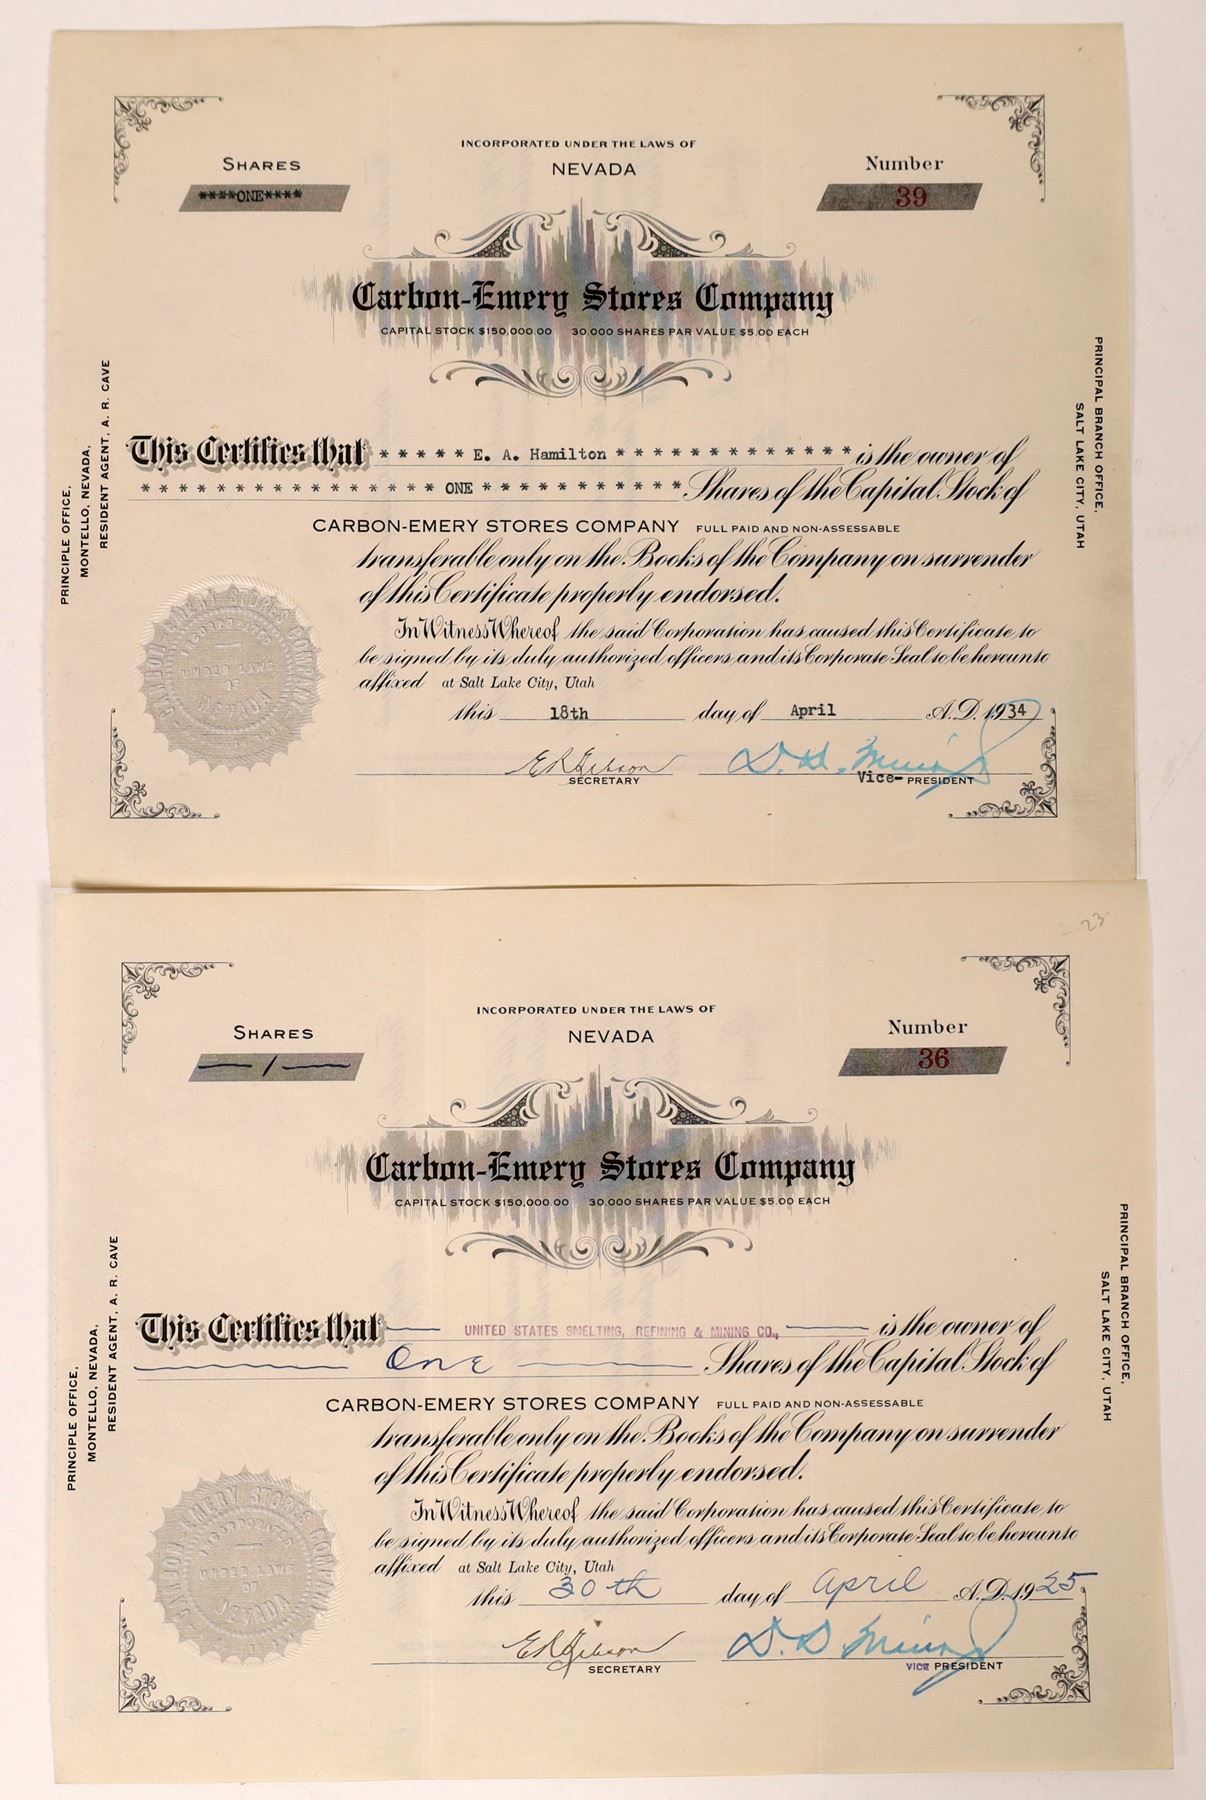 INCORPORATED UNDER THE LAWS OF
NEVADA
SHARES
****ONE****
Number
39
Carbon-Emery Stores Company
CAPITAL STOCK $150,000.00 30,000 SHARES PAR VALUE $5.00 EACH
PRINCIPLE OFFICE,
MONTELLO, NEVADA,
RESIDENT AGENT, A. R. CAVE
PRINCIPAL BRANCH OFFICE,
SALT LAKE CITY, UTAH
This Certifies that * * * * * E. A. Hamilton * * * * * * * * * * * * * is the owner of
* * * * * * * * * * * * * * * * ONE * * * * * * * * * * * * Shares of the Capital Stock of
CARBON-EMERY STORES COMPANY FULL PAID AND NON-ASSESSABLE
transferable only on the Books of the Company on surrender
of this Certificate properly endorsed.
In Witness Whereof the said Corporation has caused this Certificate to
be signed by its duly authorized officers and its Corporate Seal to be hereunto
affixed at Salt Lake City, Utah
this 18th day of April A.D. 1934
SECRETARY
Vice- PRESIDENT
CARBON EMERY STORES COMPANY
INCORPORATED
UNDER LAWS
OF
NEVADA
23
INCORPORATED UNDER THE LAWS OF
NEVADA
SHARES
1
Number
36
Carbon-Emery Stores Company
CAPITAL STOCK $150,000.00 30,000 SHARES PAR VALUE $5.00 EACH
PRINCIPLE OFFICE,
MONTELLO, NEVADA,
RESIDENT AGENT, A. R. CAVE
PRINCIPAL BRANCH OFFICE,
SALT LAKE CITY, UTAH
This Certifies that UNITED STATES SMELTING, REFINING & MINING CO., is the owner of
One Shares of the Capital Stock of
CARBON-EMERY STORES COMPANY FULL PAID AND NON-ASSESSABLE
transferable only on the Books of the Company on surrender
of this Certificate properly endorsed.
In Witness Whereof the said Corporation has caused this Certificate to
be signed by its duly authorized officers and its Corporate Seal to be hereunto
affixed at Salt Lake City, Utah
this 30th day of April A.D. 1925
SECRETARY
VICE PRESIDENT
CARBON EMERY STORES COMPANY
INCORPORATED
UNDER LAWS
OF
NEVADA